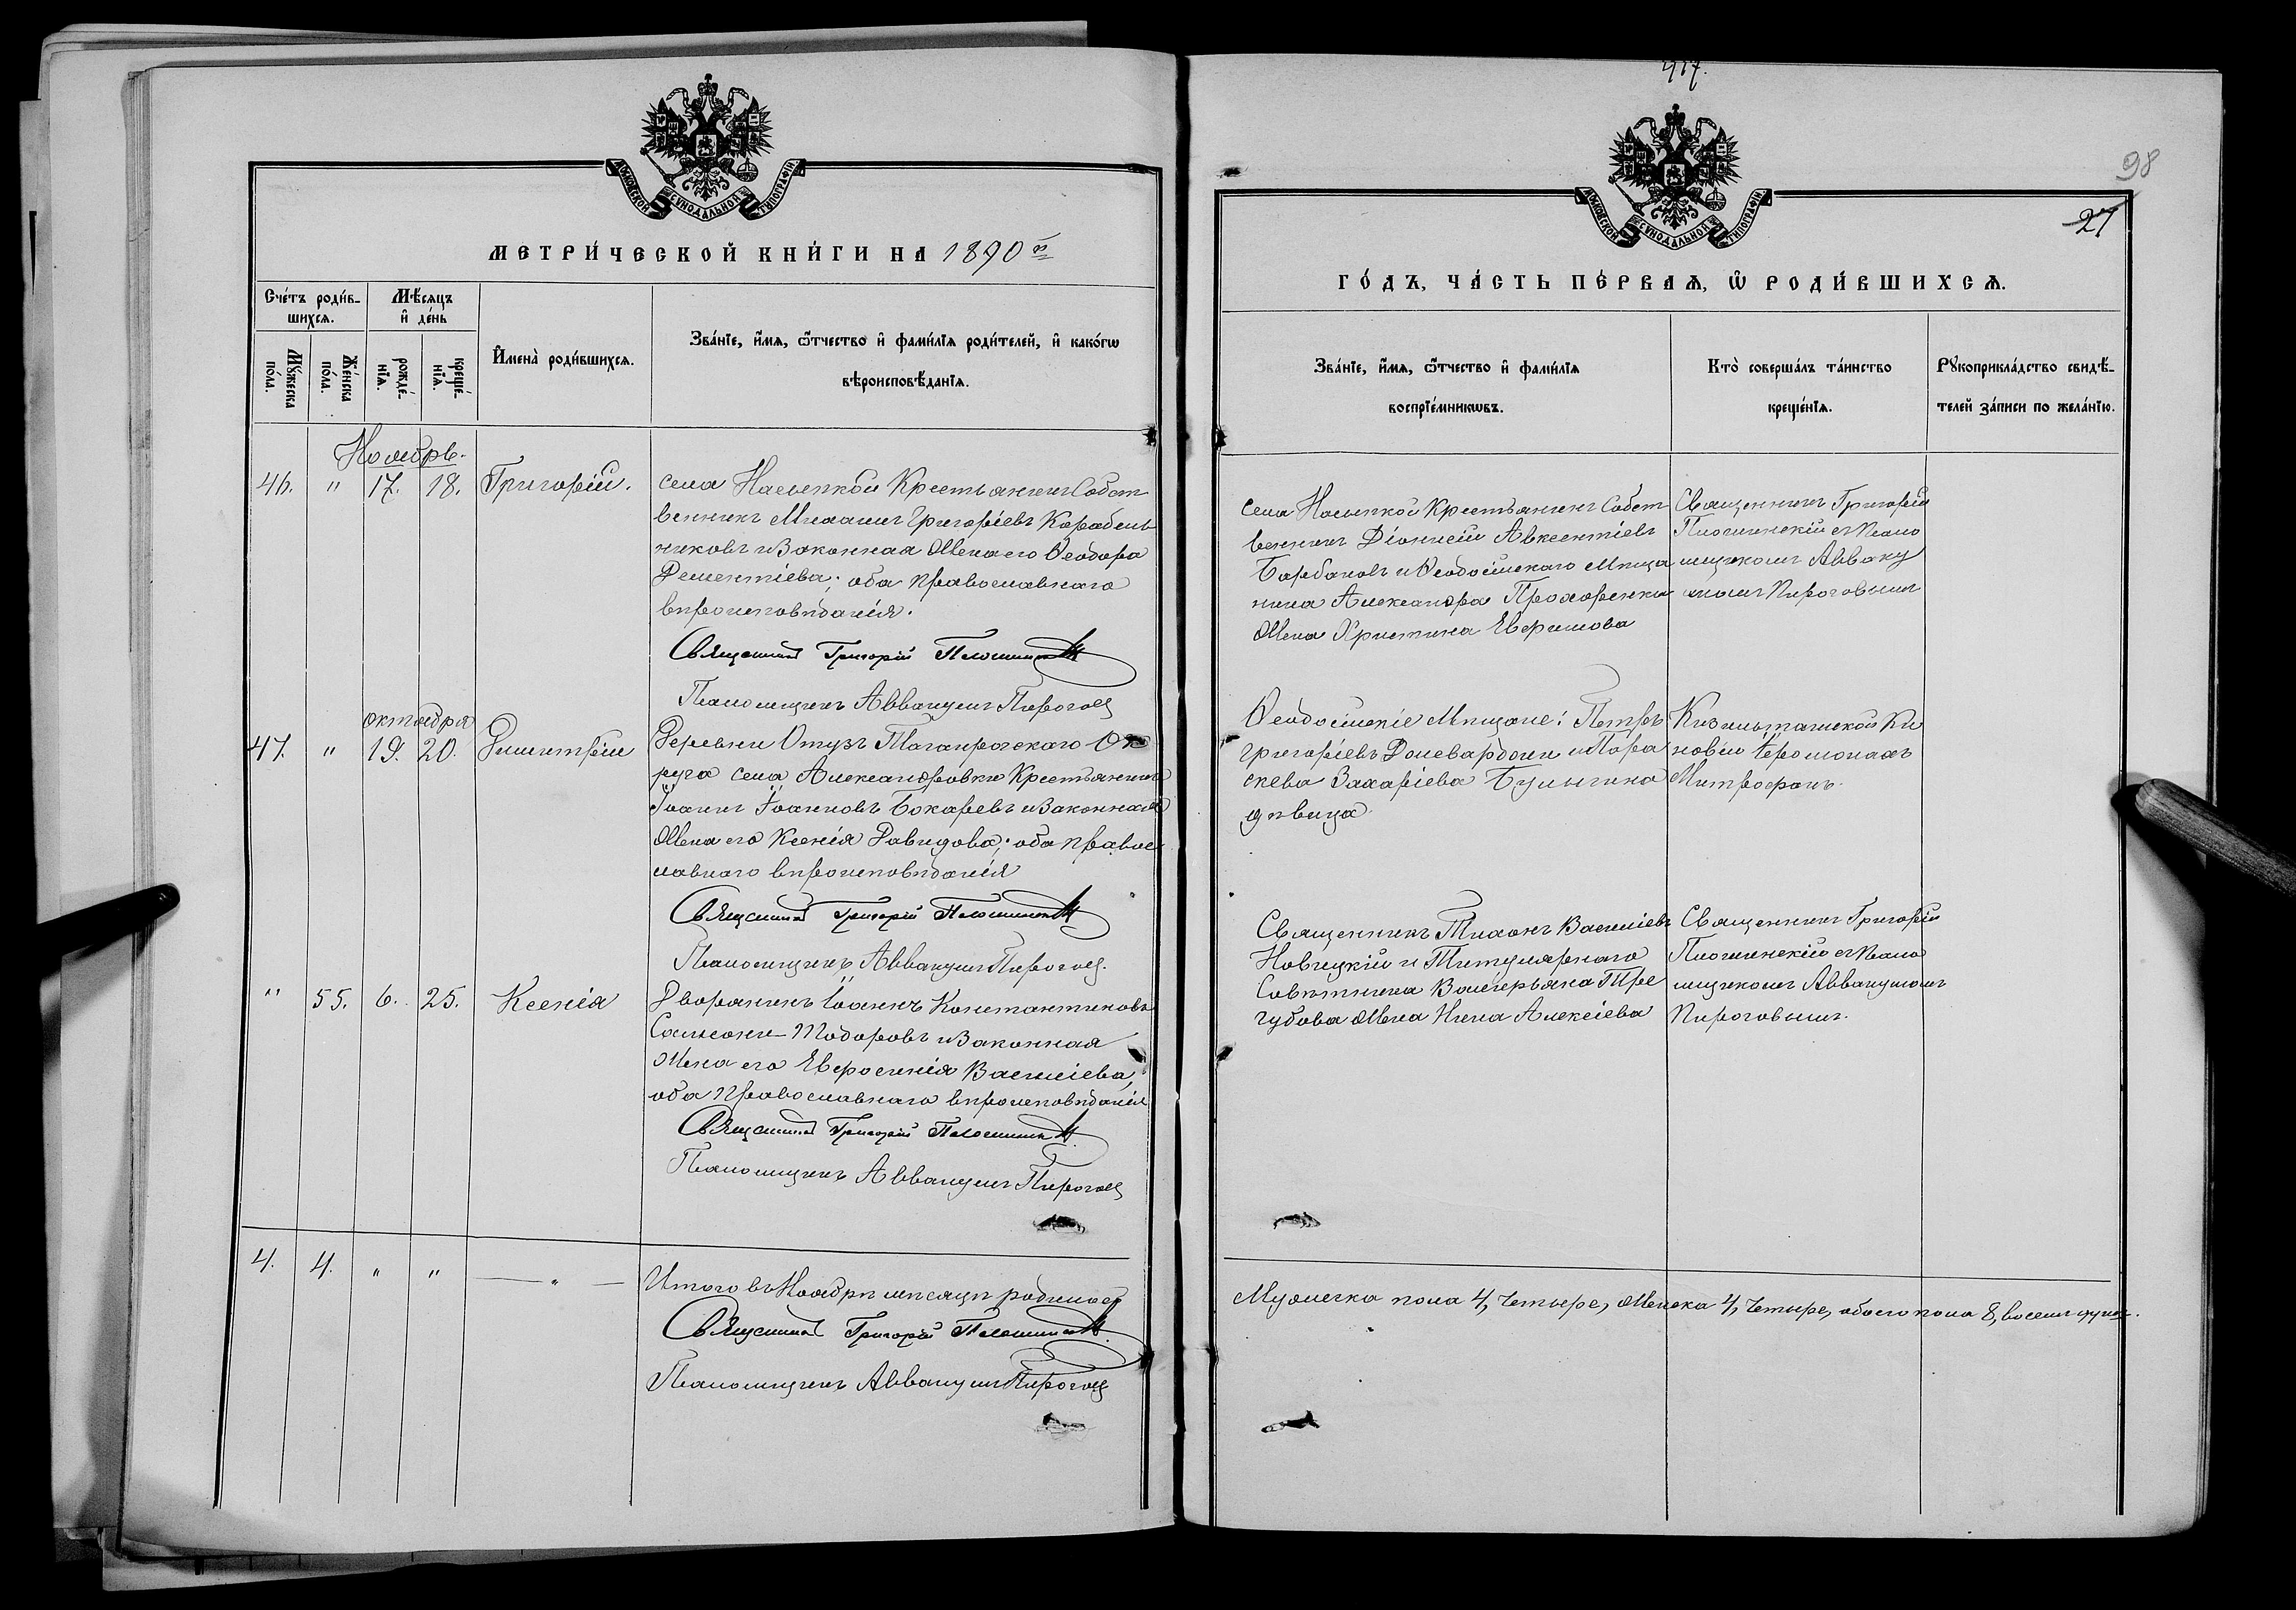 МОСКОВСКОЙ СУНОДАЛЬНОЙ ТИПОГРАФІИ
МЕТРИ́ЧЕСКОЙ КНИ́ГИ НА 1890 й
Сче́тъ роди́в-
шихсѧ.
Мѣ́сѧцъ
и҆ де́нь
Мꙋ́жеска
по́ла.
Же́нска
по́ла.
рожде́-
нїѧ.
креще́-
нїѧ.
И҆мена̀ роди́вшихсѧ.
Зва́нїе, и҆́мѧ, ѻ҆́тчество и҆ фами́лїѧ роди́телей, и҆ како́гѡ
вѣроисповѣ́данїѧ.
Ноябрь.
46. " 17. 18. Григорій.
села Насыпкой Крестьянинъ Собст
венникъ Михаилъ Григоріевъ Корабель
никовъ и Законная Жена его Ѳеодора
Дементіева; оба православнаго
вѣроисповѣданія.
Священникъ Григорій
Псаломщикъ Аввакумъ Пироговъ
октября
47. " 19. 20. Димитрій
Деревни Отузъ Таганрогскаго Ок
руга села Александровки Крестьянинъ
Іоаннъ Іоанновъ Бокаревъ и Законная
Жена его Ксенія Давидова; оба правос
лавнаго вѣроисповѣданія
Священникъ Григорій
Псаломщикъ Аввакумъ Пироговъ.
" 55. 6. 25. Ксенія
Дворянинъ Іоаннъ Константиновъ
Тодоровъ и Законная
Жена его Евфросинія Василіева,
оба Православнаго вѣроисповѣданія
Священникъ Григорій
Псаломщикъ Аввакумъ Пироговъ
4. 4. " " — " —
Итого въ Ноябрѣ мѣсяцѣ родилось
Священникъ Григорій
Псаломщикъ Аввакумъ Пироговъ
417.
98
27
МОСКОВСКОЙ СУНОДАЛЬНОЙ ТИПОГРАФІИ
ГО́ДЪ, ЧА́СТЬ ПЕ́РВАѦ, Ѡ҆ РОДИ́ВШИХСѦ.
Зва́нїе, и҆́мѧ, ѻ҆́тчество и҆ фами́лїѧ
воспрїе́мникѡвъ.
Кто̀ соверша́лъ та́инство
креще́нїѧ.
Рꙋкоприкла́дство свидѣ́-
телей за́писи по жела́нїю.
села Насыпкой Крестьянинъ Собст
венникъ Діонисій Авксентіевъ
Барбановъ и Ѳеодосійскаго Мѣща
нина Александра Прохоренки
Жена Христина Ефимова
Священникъ Григорій
съ Псало
мщикомъ Авваку
момъ Пироговымъ
Ѳеодосійскіе Мѣщане: Петръ
Григоріевъ и Пара
скева Захаріева Булыгина
дѣвица.
Кизильташской Ки
новіи Іеромонахъ
Митрофанъ.
Священникъ Тихонъ Василіевъ
Новицкій и Титулярнаго
Совѣтника Валеріана Тре
губова Жена Нина Алексіева
Священникъ Григорій
съ Псало
мщикомъ Аввакумомъ
Пироговымъ.
Мужеска пола 4, Четыре, Женска 4, Четыре, обоего пола 8, восемь душъ.